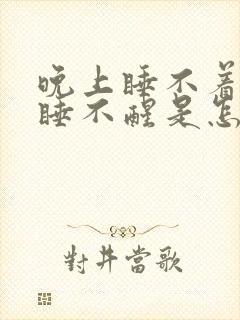 晚上睡不着
睡不醒是怎
對井當歌